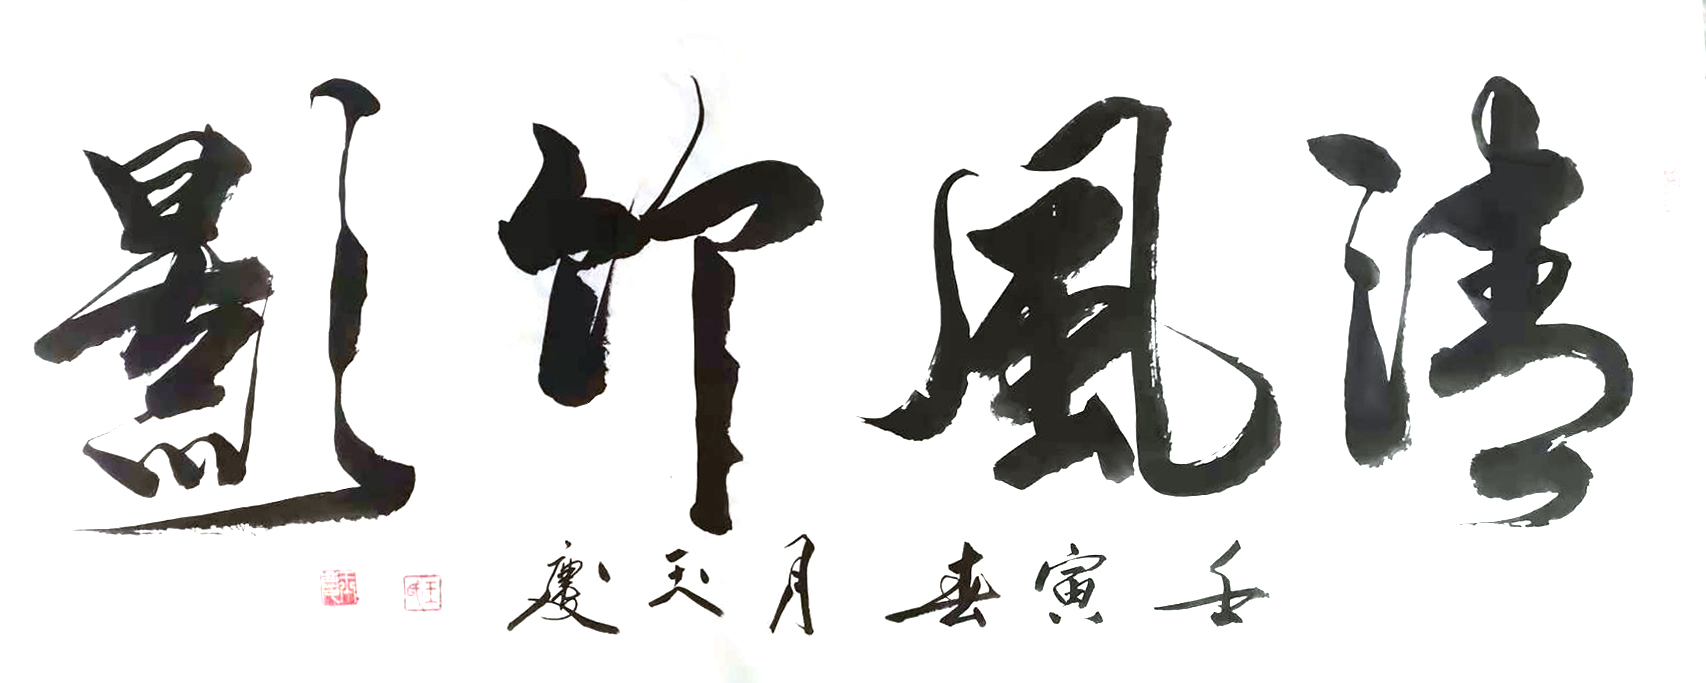 清風竹影
壬寅春月天慶